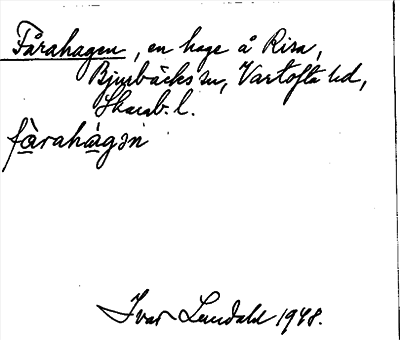 Fårahagen, en hage å Risa,
Bjurbäcks sn, Vartofta hd,
Skarab. l.
fàrahágən
Ivar Lundahl 1948.